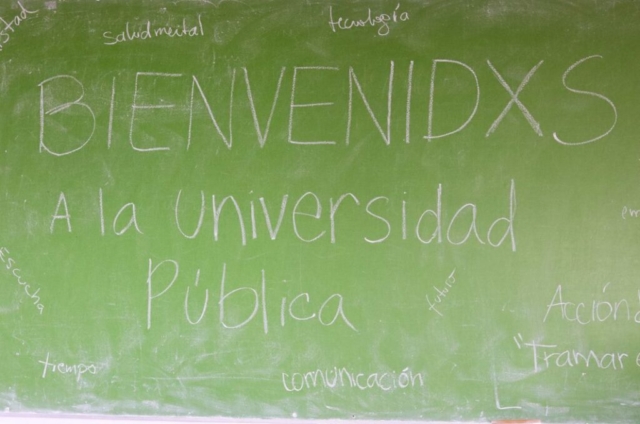 salud mental
tecnología
BIENVENIDXS
A la Universidad
Pública
escucha
futuro
Acción
"Tramar
tiempo
comunicación